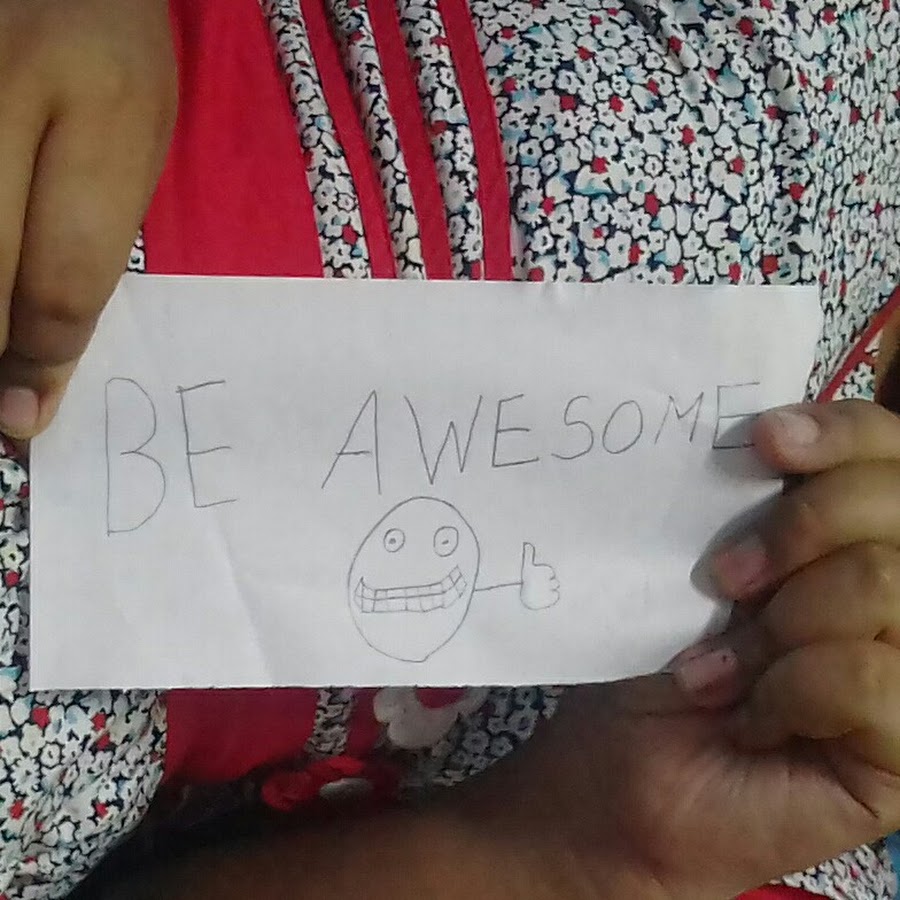 BE AWESOME